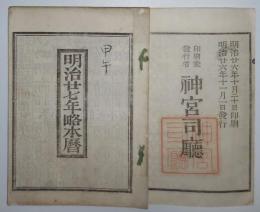 明治廿六年十月二十日印刷
明治廿六年十一月一日發行
印刷兼
發行者
神宮司廳
甲午
明治廿七年略本暦